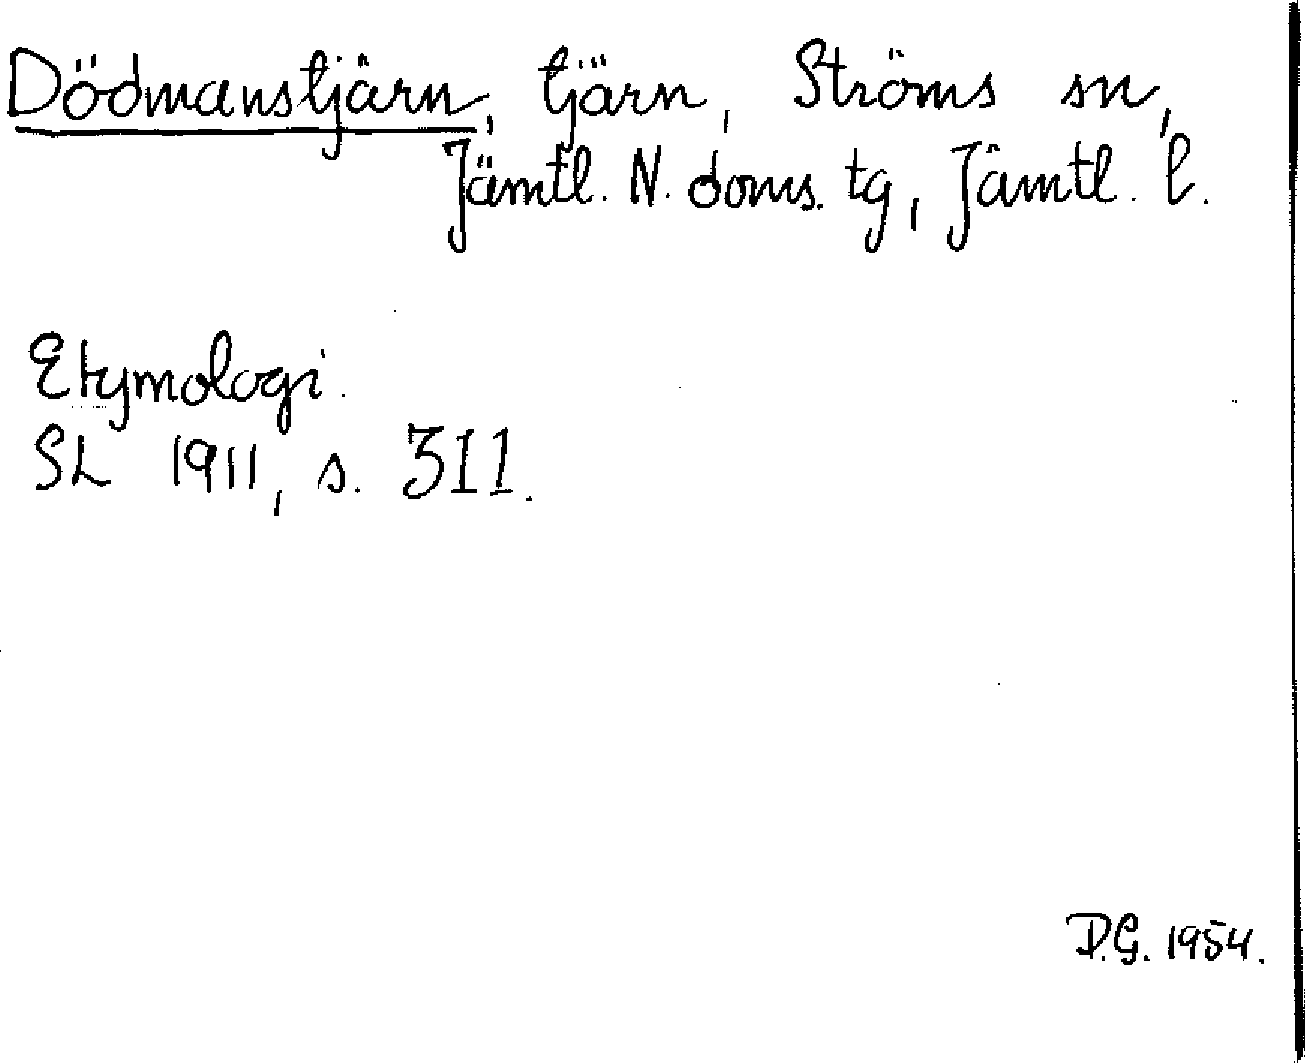 Dödmanstjärn, tjärn, Ströms sn,
Jämtl. N. doms. tg, Jämtl. l.
Etymologi.
SL 1911, s. 311.
D.G. 1954.